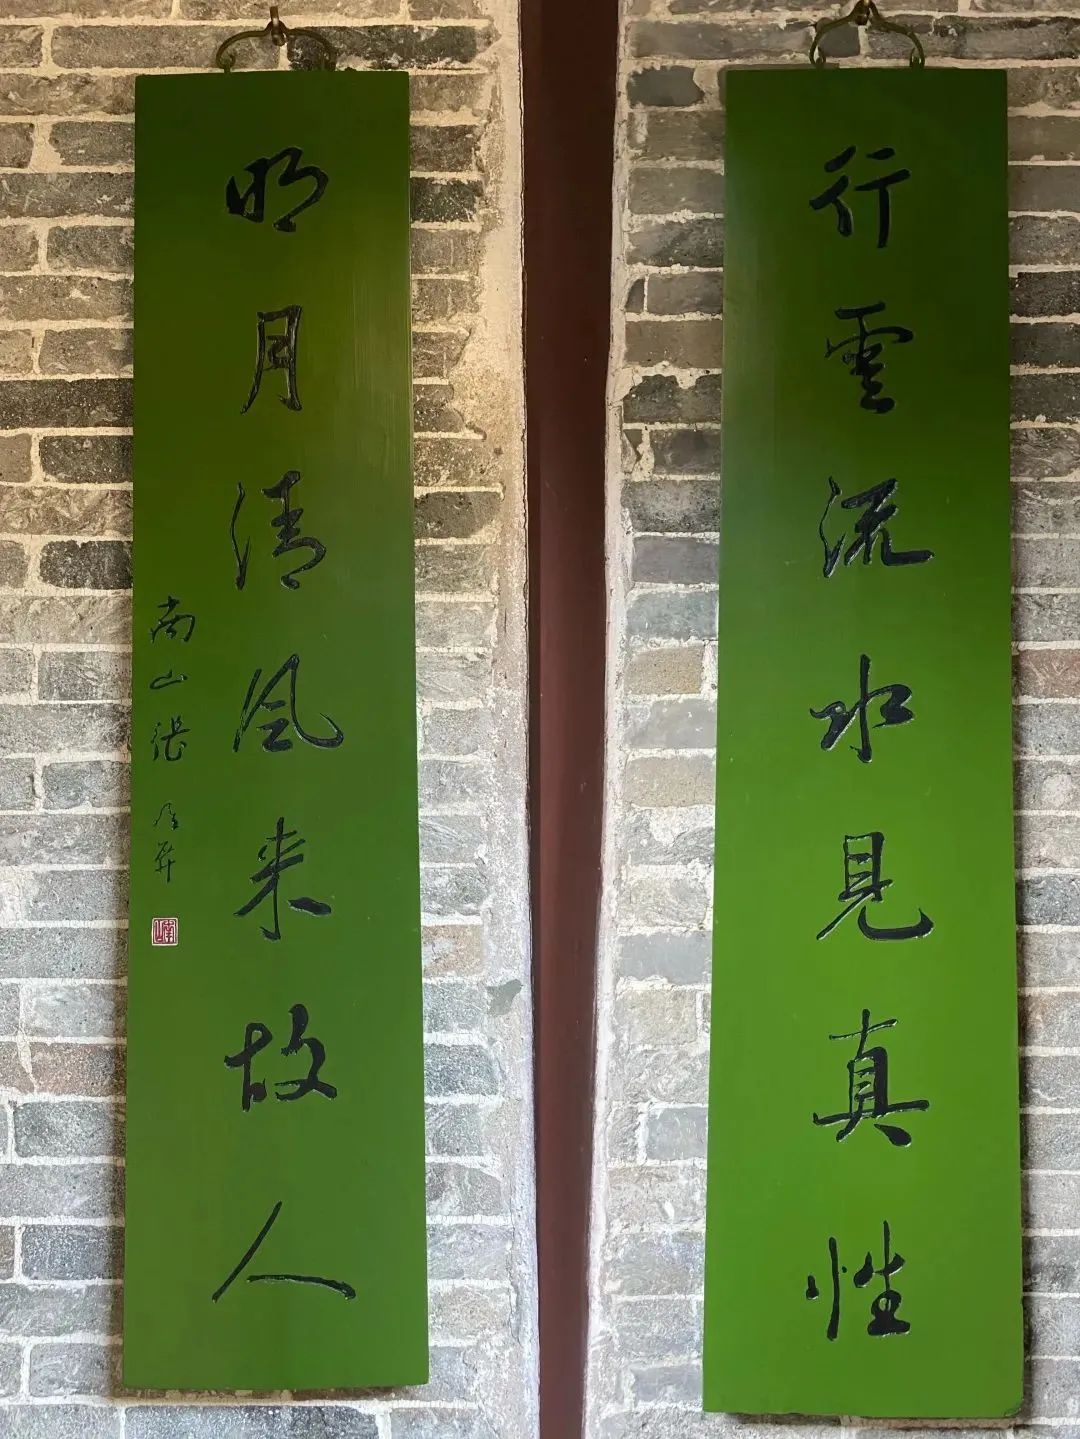 行雲流水見真性
明月清风来故人
南山張